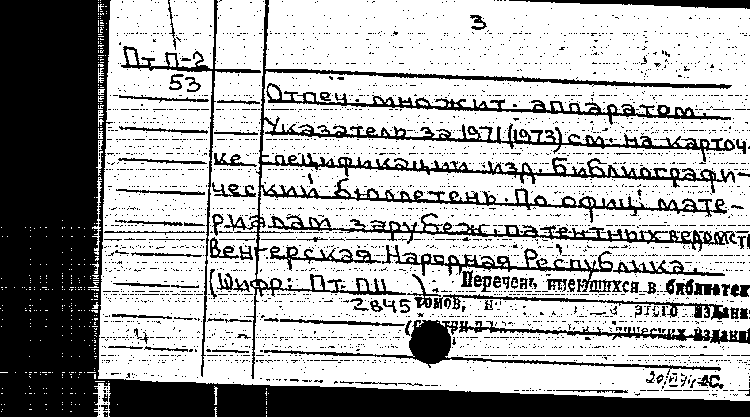 3
Пт П-2
53
Отпеч. множит. аппаратом.
Указатель за 1971 (1973) см. на карточ-
ке спецификации изд. Библиографи-
ческий бюллетень. По офиц. мате-
риалам зарубеж. патентных ведомств
Венгерская Народная Республика.
(Шифр: Пт. ПII ). Перечень имеющихся в библиотек
2845 томов, этого издани
ических издани